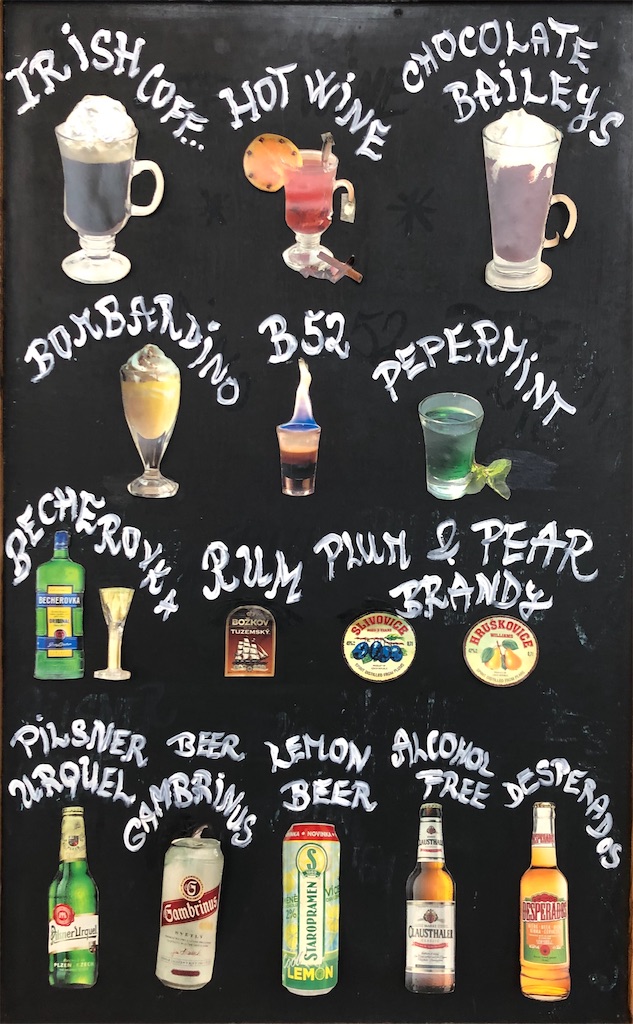 IRISH COFF..
HOT WINE
CHOCOLATE
BAILEYS
BOMBARDINO
B52
PEPERMINT
BECHEROVKA
RUM
PLUM & PEAR
BRANDY
BECHEROVKA
ORIGINAL
BOŽKOV
TUZEMSKÝ
SLIVOVICE
HRUŠKOVICE
WILLIAMS
PILSNER
URQUEL
BEER
GAMBRINUS
LEMON
BEER
ALCOHOL
FREE
DESPERADOS
Pilsner Urquell
PLZEN
Gambrinus
NOVINKA
S
STAROPRAMEN
LEMON
CLAUSTHALER
DESPERADOS